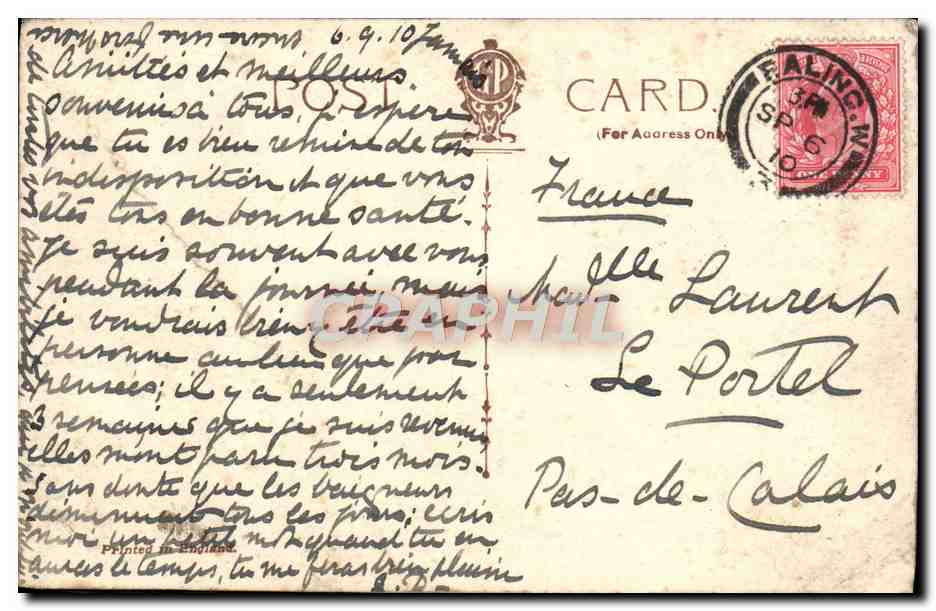 6.9.10
Amitiés et meilleurs
souvenirs à tous, j'espère
que tu es bien remise de ton
indisposition et que vous
êtes tous en bonne santé.
Je suis souvent avec vous
pendant la journée mais
je voudrais bien y être en
personne au lieu que par
pensées; il y a seulement
3 semaines que je suis revenu
elles m'ont paru trois mois.
Sans doute que les baigneurs
diminuent tous les jours; écris
moi un petit mot quand tu en
auras le temps, tu me feras bien plaisir
POST CARD.
(For Address Only)
EALING.W
3PM
SP 6
10
ONE PENNY
France
Madelle Laurent
Le Portel
Pas-de-Calais
CPAPHIL
Printed in England.